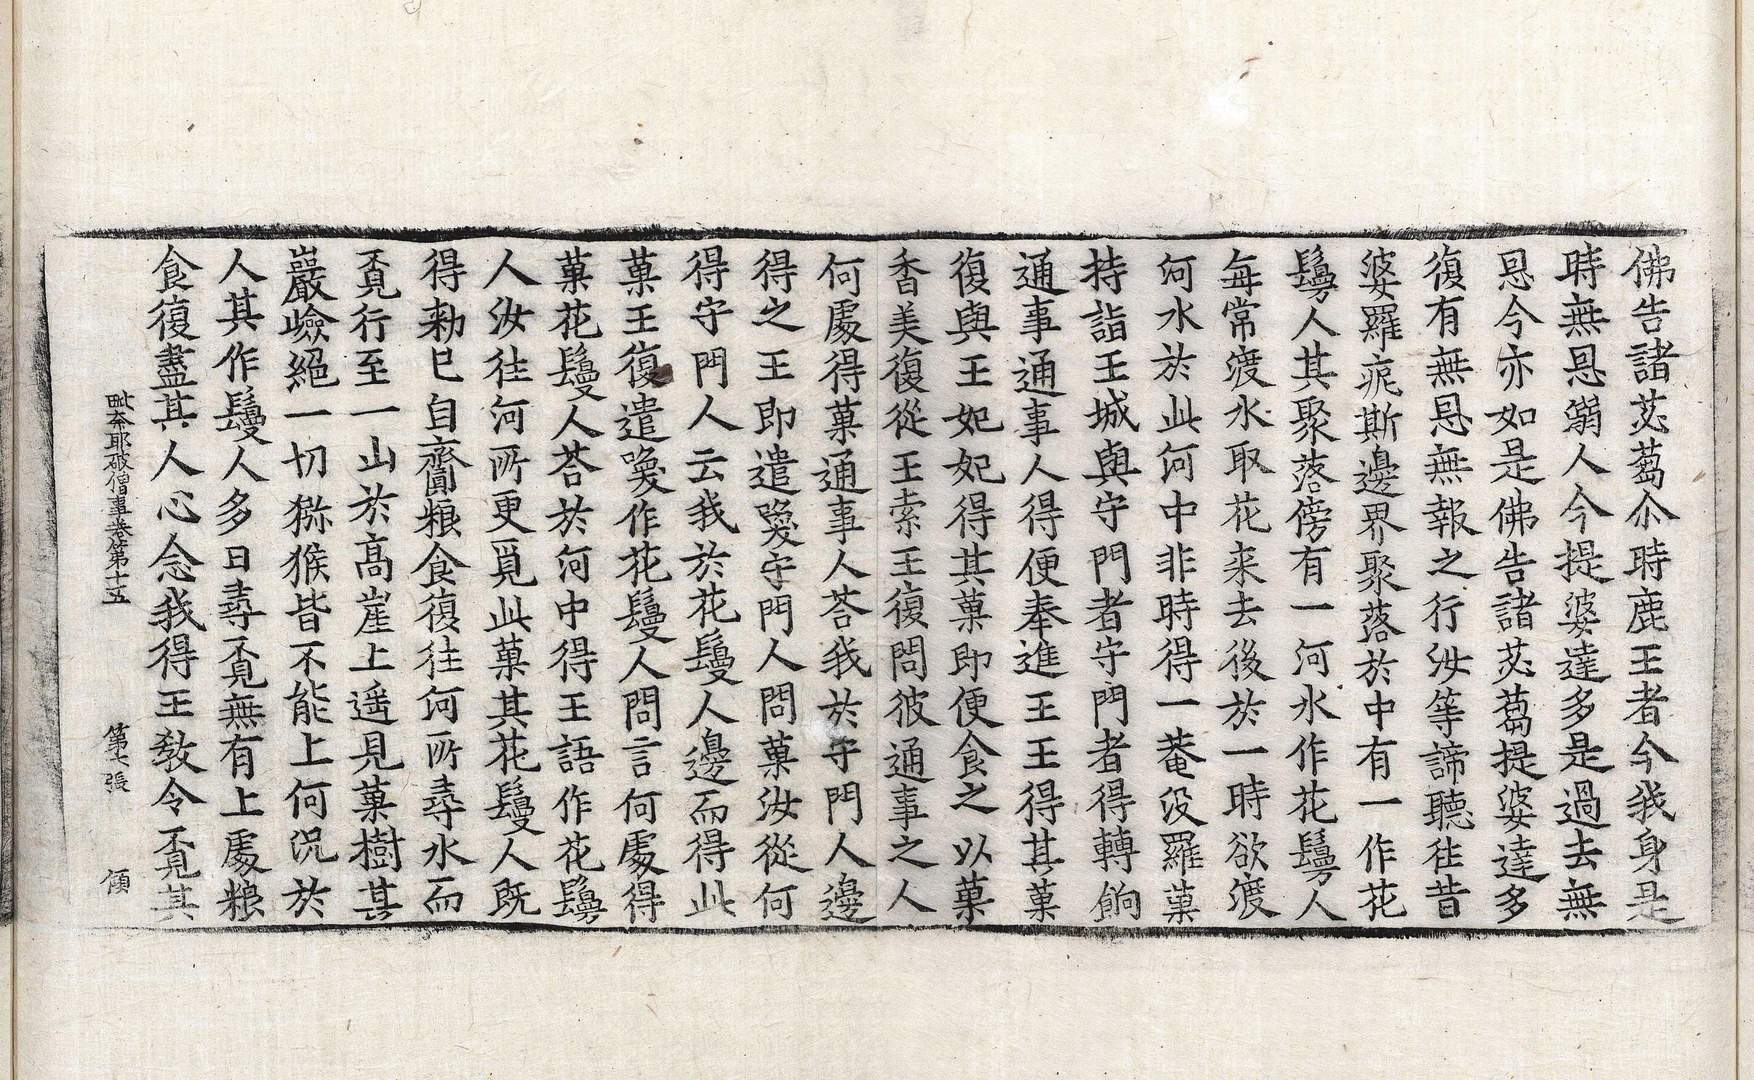 佛告諸苾蒭尒時鹿王者今我身是
時無恩溺人今提婆達多是過去無
恩今亦如是佛告諸苾蒭提婆達多
復有無恩無報之行汝等諦聽徃昔
婆羅痆斯邊界聚落於中有一作花
鬘人其聚落傍有一河水作花鬘人
每常渡水取花来去後於一時欲渡
河水於此河中非時得一菴没羅菓
持詣王城與守門者守門者得轉餉
通事通事人得便奉進王王得其菓
復與王妃妃得其菓即便食之以菓
香美復從王索王復問彼通事之人
何處得菓通事人荅我於守門人邊
得之王即遣喚守門人問菓汝從何
得守門人云我於花鬘人邊而得此
菓王復遣喚作花鬘人問言何處得
菓花鬘人荅於河中得王語作花鬘
人汝往河所更覓此菓其花鬘人既
得勑已自齎粮食復往河所尋水而
覔行至一山於高崖上遥見菓樹其
巖嶮絕一切獼猴皆不能上何況於
人其作鬘人多日尋覔無有上處粮
食復盡其人心念我得王教令覔其
毗奈耶破僧事卷第十五　第七張　傾